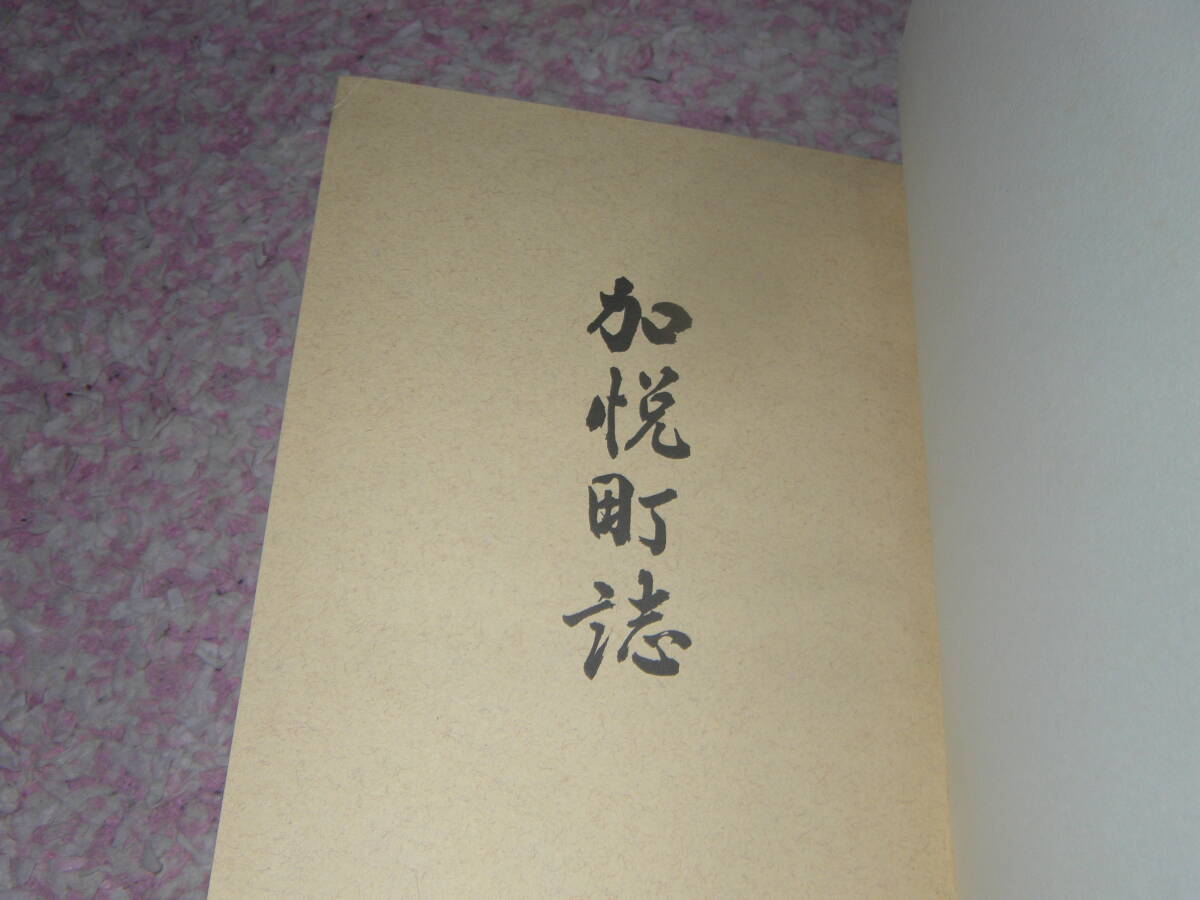 加悦町誌